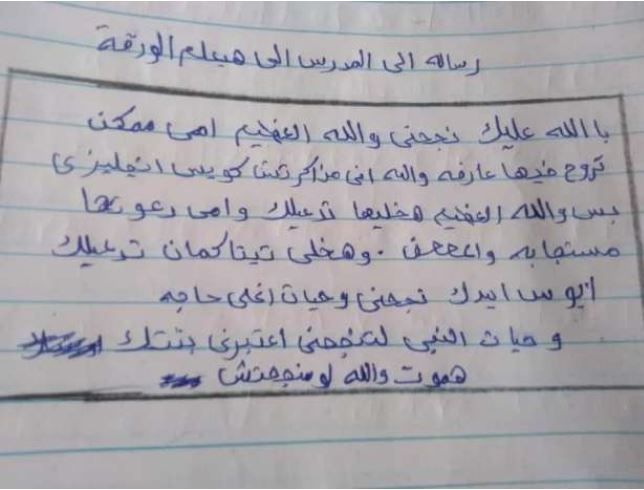 رساله الى المدرس الى هيعلم الورقة
با الله عليك نجحنى والله العظيم امى ممكن
تروح فيها عارفه والله انى مذاكرتش كويس انجليزى
بس والله العظيم هخليها تدعيلك وامى دعوتها
مستجابه وو وهخلى تيتا كمان تدعيلك
ابوس ايدك نجحنى وحيات اغلى حاجه
وحيات النبى لتنجحنى اعتبرنى بنتك
هموت والله لو منجحتش